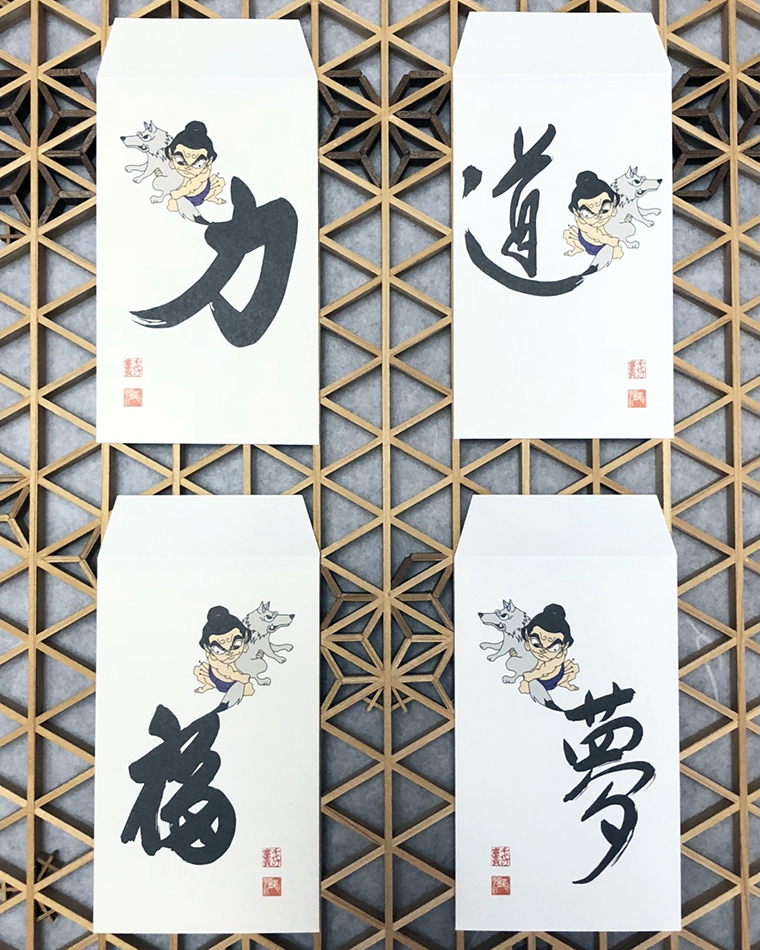 力
道
福
夢